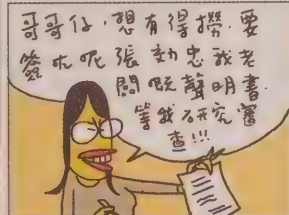 哥哥仔，想有得撈．要
簽咗呢張効忠我老
闆嘅聲明書．
等我研究審
查!!!